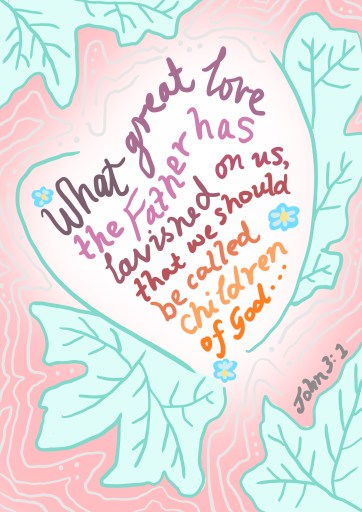 What great love
the Father has
lavished on us,
that we should
be called
children
of God...
John 3:1